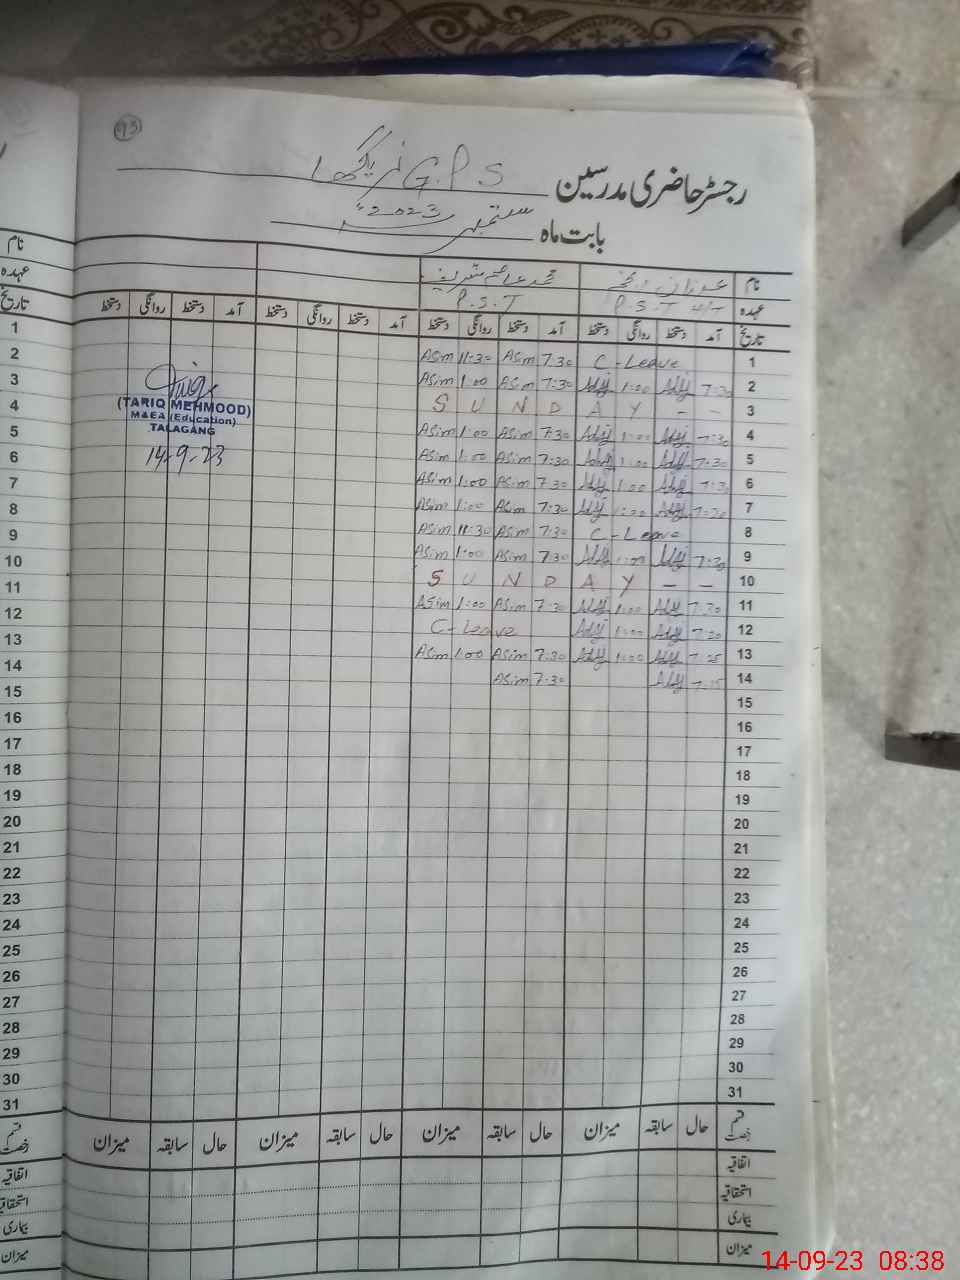 93
رجسٹر حاضری مدرسین G.P.S
بابت ماہ ستمبر 2023ء
نام محمد عاصم شریف نام
عہدہ P.S.T P.S.T H/T عہدہ
تاریخ آمد دستخط روانگی دستخط آمد دستخط روانگی دستخط آمد دستخط روانگی دستخط آمد دستخط روانگی دستخط تاریخ
1 Asim 11:30 Asim 7:30 C-Leave 1
2 Asim 1:00 Asim 7:30 1:00 7:30 2
3 S U N D A Y - - 3
4 Asim 1:00 Asim 7:30 1:00 7:30 4
5 Asim 1:00 Asim 7:30 1:00 7:30 5
6 Asim 1:00 Asim 7:30 1:00 7:30 6
7 Asim 1:00 Asim 7:30 1:00 7:20 7
8 Asim 11:30 Asim 7:30 C-Leave 8
9 Asim 1:00 Asim 7:30 1:00 7:30 9
10 S U N D A Y - - 10
11 Asim 1:00 Asim 7:30 1:00 7:30 11
12 C-Leave 1:00 7:20 12
13 Asim 1:00 Asim 7:30 1:00 7:25 13
14 Asim 7:30 7:15 14
15 15
16 16
17 17
18 18
19 19
20 20
21 21
22 22
23 23
24 24
25 25
26 26
27 27
28 28
29 29
30 30
31 31
(TARIQ MEHMOOD)
M&EA (Education)
TALAGANG
14-9-23
قسم رخصت حال سابقہ میزان حال سابقہ میزان حال سابقہ میزان حال سابقہ میزان قسم رخصت
اتفاقیہ اتفاقیہ
استحقاقیہ استحقاقیہ
بیماری بیماری
میزان میزان
14-09-23 08:38